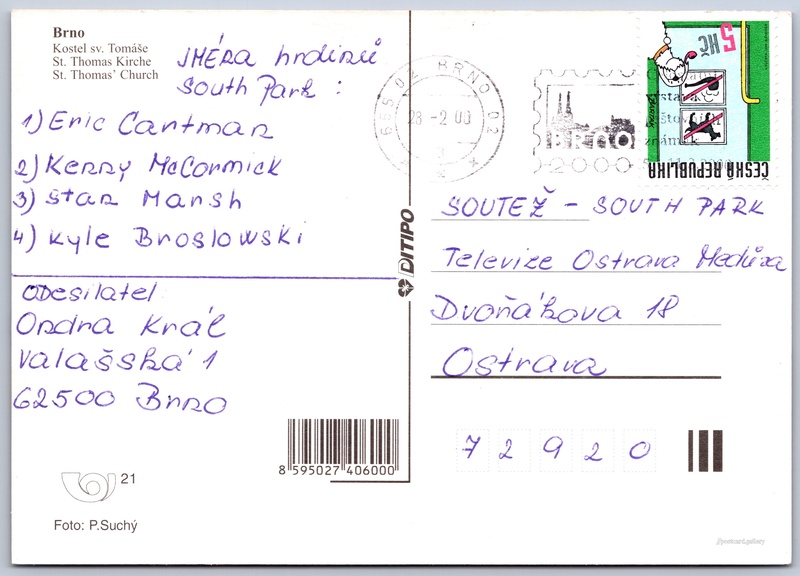 Brno
Kostel sv. Tomáše
St. Thomas Kirche
St. Thomas' Church
JMÉNA hrdinů
South Park :
1) Eric Cartman
2) Kenny McCormick
3) Stan Marsh
4) Kyle Broslowski
Odesilatel
Ondra Král
Valašská 1
62500 Brno
8 595027 406000
21
Foto: P.Suchý
DITIPO
655 02 BRNO 02
28 -2 00
BRNO
2000
5 Kč
ČESKÁ REPUBLIKA
SOUTEŽ – SOUTH PARK
Televize Ostrava Medůza
Dvořákova 18
Ostrava
72920